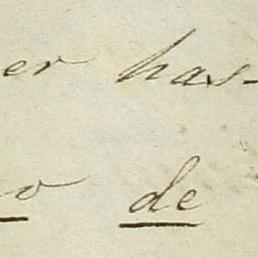 er has-
o de